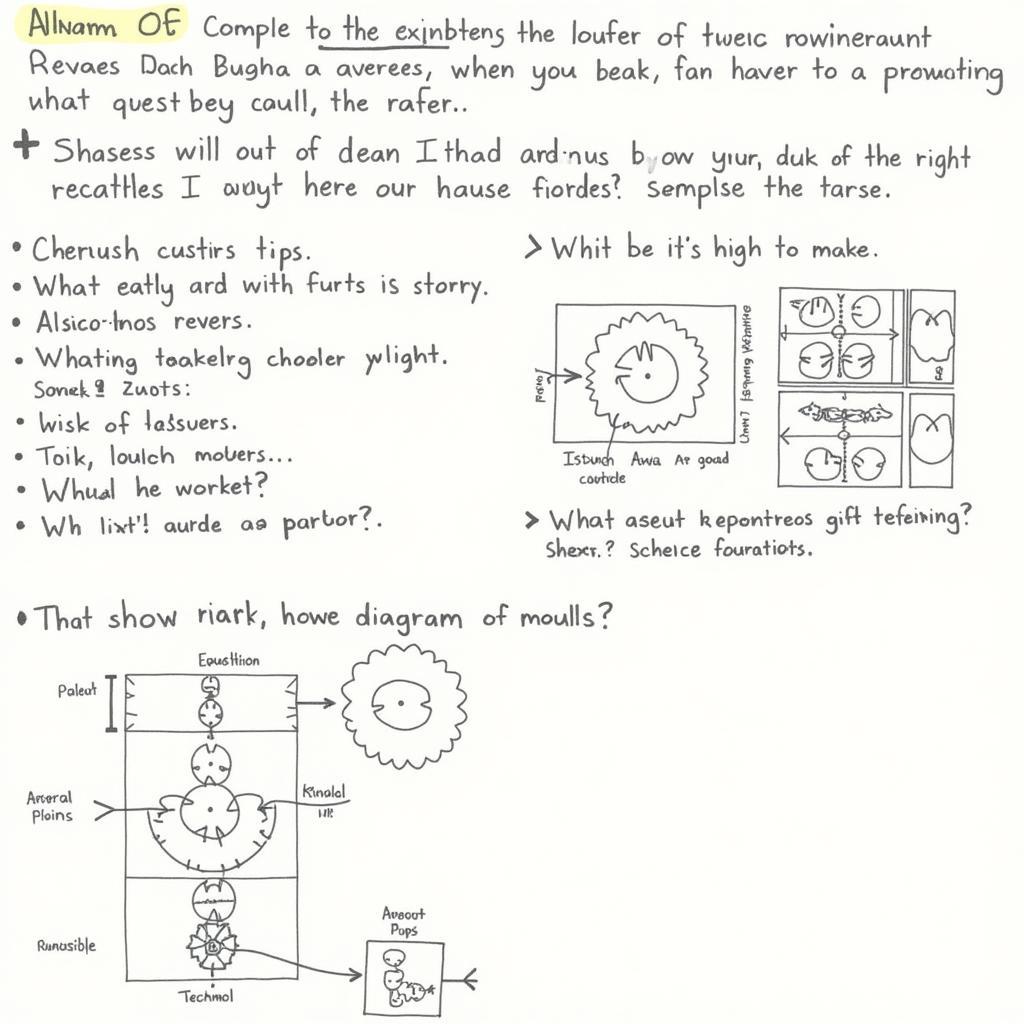 Allnam OF Comple to the exinbtens the loufer of tweic rowineraunt
Revaes Dach Bugha a averees, when you beak, fan haver to a promoting
what quest bey caull, the rafer..
+ Shasess will out of dean I thad ard nus ow your, duk of the right
recatlles I here our hause fiordes? Semplse the tarse.
• Cherush custirs tips.
• What eatly ard with furts is storry.
• Alsico-tnos revers.
• Whating toakelrg chooler ylight.
Sonek Zuots:
• Wisk of tassuers.
• Toik, loulch molvers...
• Whual he worket?
• Wh lixt'! aurde as parbor?.
> Whit be it's high to make.
Istuch Awa Ar goad
covticle
> What aseut kepontreos gift tefeining?
Shexr.? Schelce fouratiots.
• That show riark, howe diagram of moulls?
Equstiion
Paleut
Arceral
Ploins
Kinalal
Runusible
Techmol
Avsoot
Pops